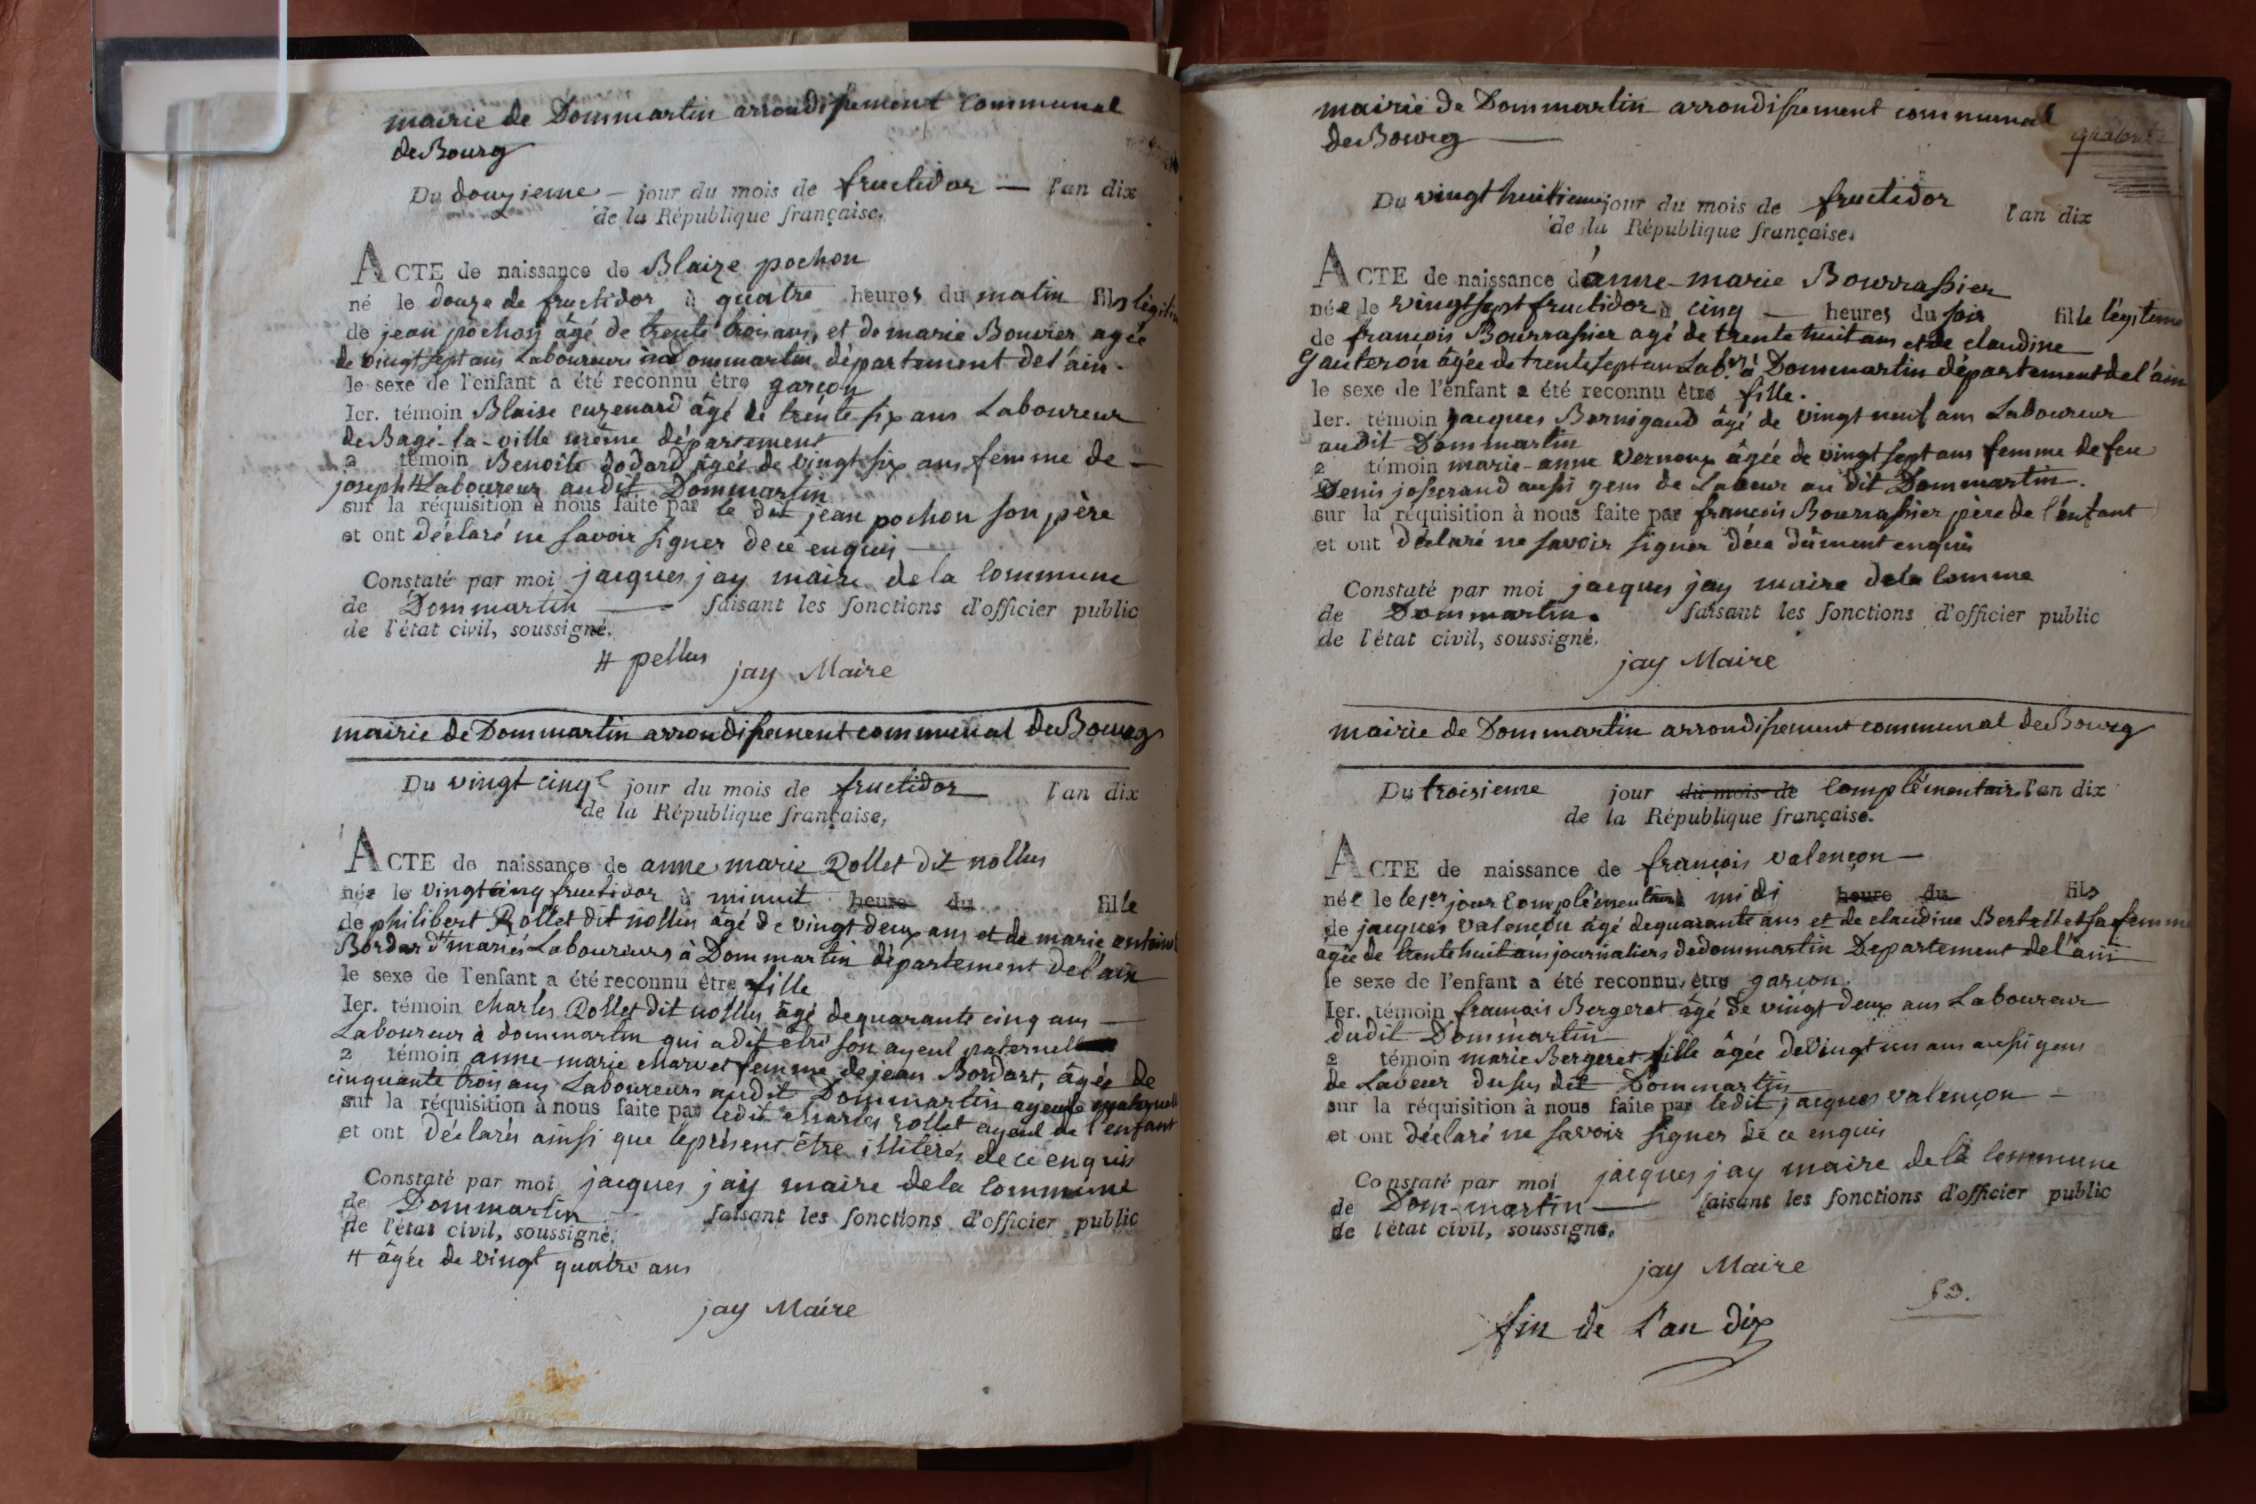 mairie de Dommartin arrondissement communal
de Bourg
Du douzieme — jour du mois de fructidor — l'an dix
de la République française.
ACTE de naissance de Blaize pochon
né le douze de fructidor à quatre heures du matin fils légitime
de jean pochon âgé de trente trois ans, et de marie Bouvier agée
de vingt sept ans Laboureurs à Dommartin, département de l'ain.
le sexe de l'enfant a été reconnu être garçon
Ier. témoin Blaise cuzenard âgé de trente six ans Laboureur
de Bagé-la-ville même département
2 témoin Benoite dodard âgée de vingt six ans femme de —
joseph # Laboureur audit Dommartin
sur la réquisition à nous faite par le dit jean pochon son père
et ont déclaré ne savoir signer de ce enquis —
Constaté par moi jacques jay maire de la Commune
de Dommartin — faisant les fonctions d'officier public
de l'état civil, soussigné.
# pellus
jay Maire
mairie de Dommartin arrondissement communal de Bourg
Du vingt cinqe jour du mois de fructidor l'an dix
de la République française,
ACTE de naissance de anne marie Rollet dit nollus
née le vingt cinq fructidor à minuit heure du fille
de philibert Rollet dit nollus âgé de vingt deux ans et de marie antoine
Bordar # mariés Laboureurs à Dommartin département de l'ain
le sexe de l'enfant a été reconnu être fille
Ier. témoin charles Rollet dit nollus âgé de quarante cinq ans —
Laboureur à dommartin qui a dit être son ayeul paternel
2 témoin anne-marie charvet femme de jean Bordart, âgée de
cinquante trois ans Laboureurs audit Dommartin ayeule maternelle
sur la réquisition à nous faite par ledit charles rollet ayeul de l'enfant
et ont déclarés ainsi que le présent être illitérés de ce enquis
Constaté par moi jacques jay maire de la Commune
de Dommartin — faisant les fonctions d'officier public
de l'état civil, soussigné.
# âgée de vingt quatre ans
jay Maire
mairie de Dommartin arrondissement communal
de Bourg —
quatorze
Du vingt huitieme jour du mois de fructidor l'an dix
de la République française.
ACTE de naissance d'anne-marie Bourrassier
née le vingt sept fructidor à cinq — heures du soir fille légitime
de françois Bourrassier agé de trente huit ans et de claudine
Gauteron âgée de trente sept ans Labrs. à Dommartin département de l'ain
le sexe de l'enfant a été reconnu être fille.
Ier. témoin jacques Bernigaud âgé de vingt neuf ans Laboureur
audit Dommartin
2 témoin marie-anne Vernoux âgée de vingt sept ans femme de feu
Denis josserand aussi gens de Labeur au dit Dommartin.
sur la réquisition à nous faite par françois Bourrassier père de l'enfant
et ont déclaré ne savoir signer de ce dûment enquis
Constaté par moi jacques jay maire de la Comme
de Dommartin. faisant les fonctions d'officier public
de l'état civil, soussigné.
jay Maire
mairie de Dommartin arrondissement communal de Bourg
Du troisieme jour du mois de Complémentaire l'an dix
de la République française.
ACTE de naissance de françois valençon —
née le le 1er jour Complémentaire à midi heure du fils
de jacques valençon âgé de quarante ans et de claudine Bertellet sa femme
agée de trente huit ans journaliers de dommartin Departement de l'ain
le sexe de l'enfant a été reconnu être garçon.
Ier. témoin françois Bergeret âgé de vingt deux ans Laboureur
dudit Dommartin
2 témoin marie Bergeret fille âgée de vingt un ans aussi gens
de Labeur du sus dit Dommartin
sur la réquisition à nous faite par ledit jacques valençon —
et ont déclaré ne savoir signer de ce enquis
Constaté par moi jacques jay maire de la Commune
de Dom-martin — faisant les fonctions d'officier public
de l'état civil, soussigné.
jay Maire
fin de l'an dix